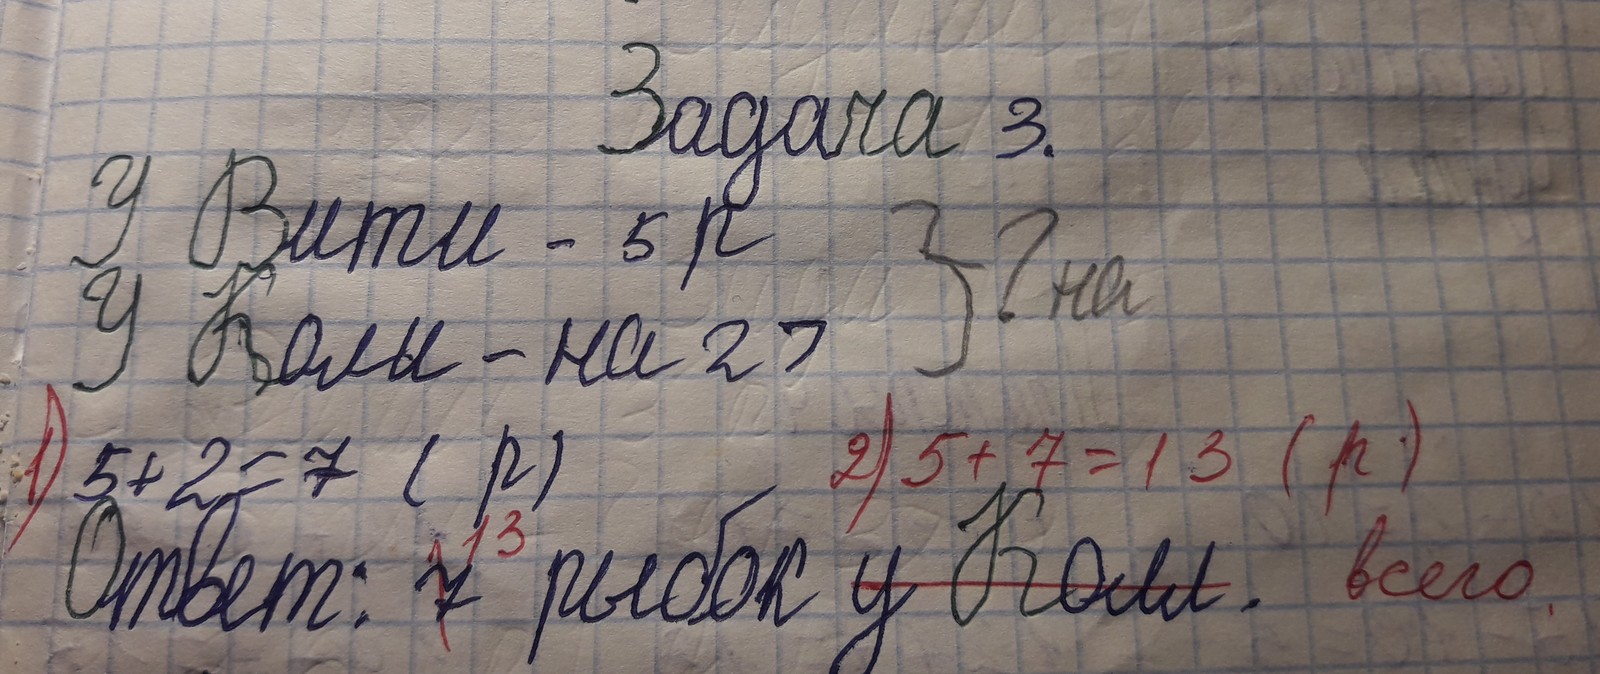 Задача 3.
У Вити - 5 р
У Коли - на 2 > } ? на
1) 5+2=7 (р) 2) 5+7=13 (р)
Ответ: 7 13 рыбок у Коли. всего.